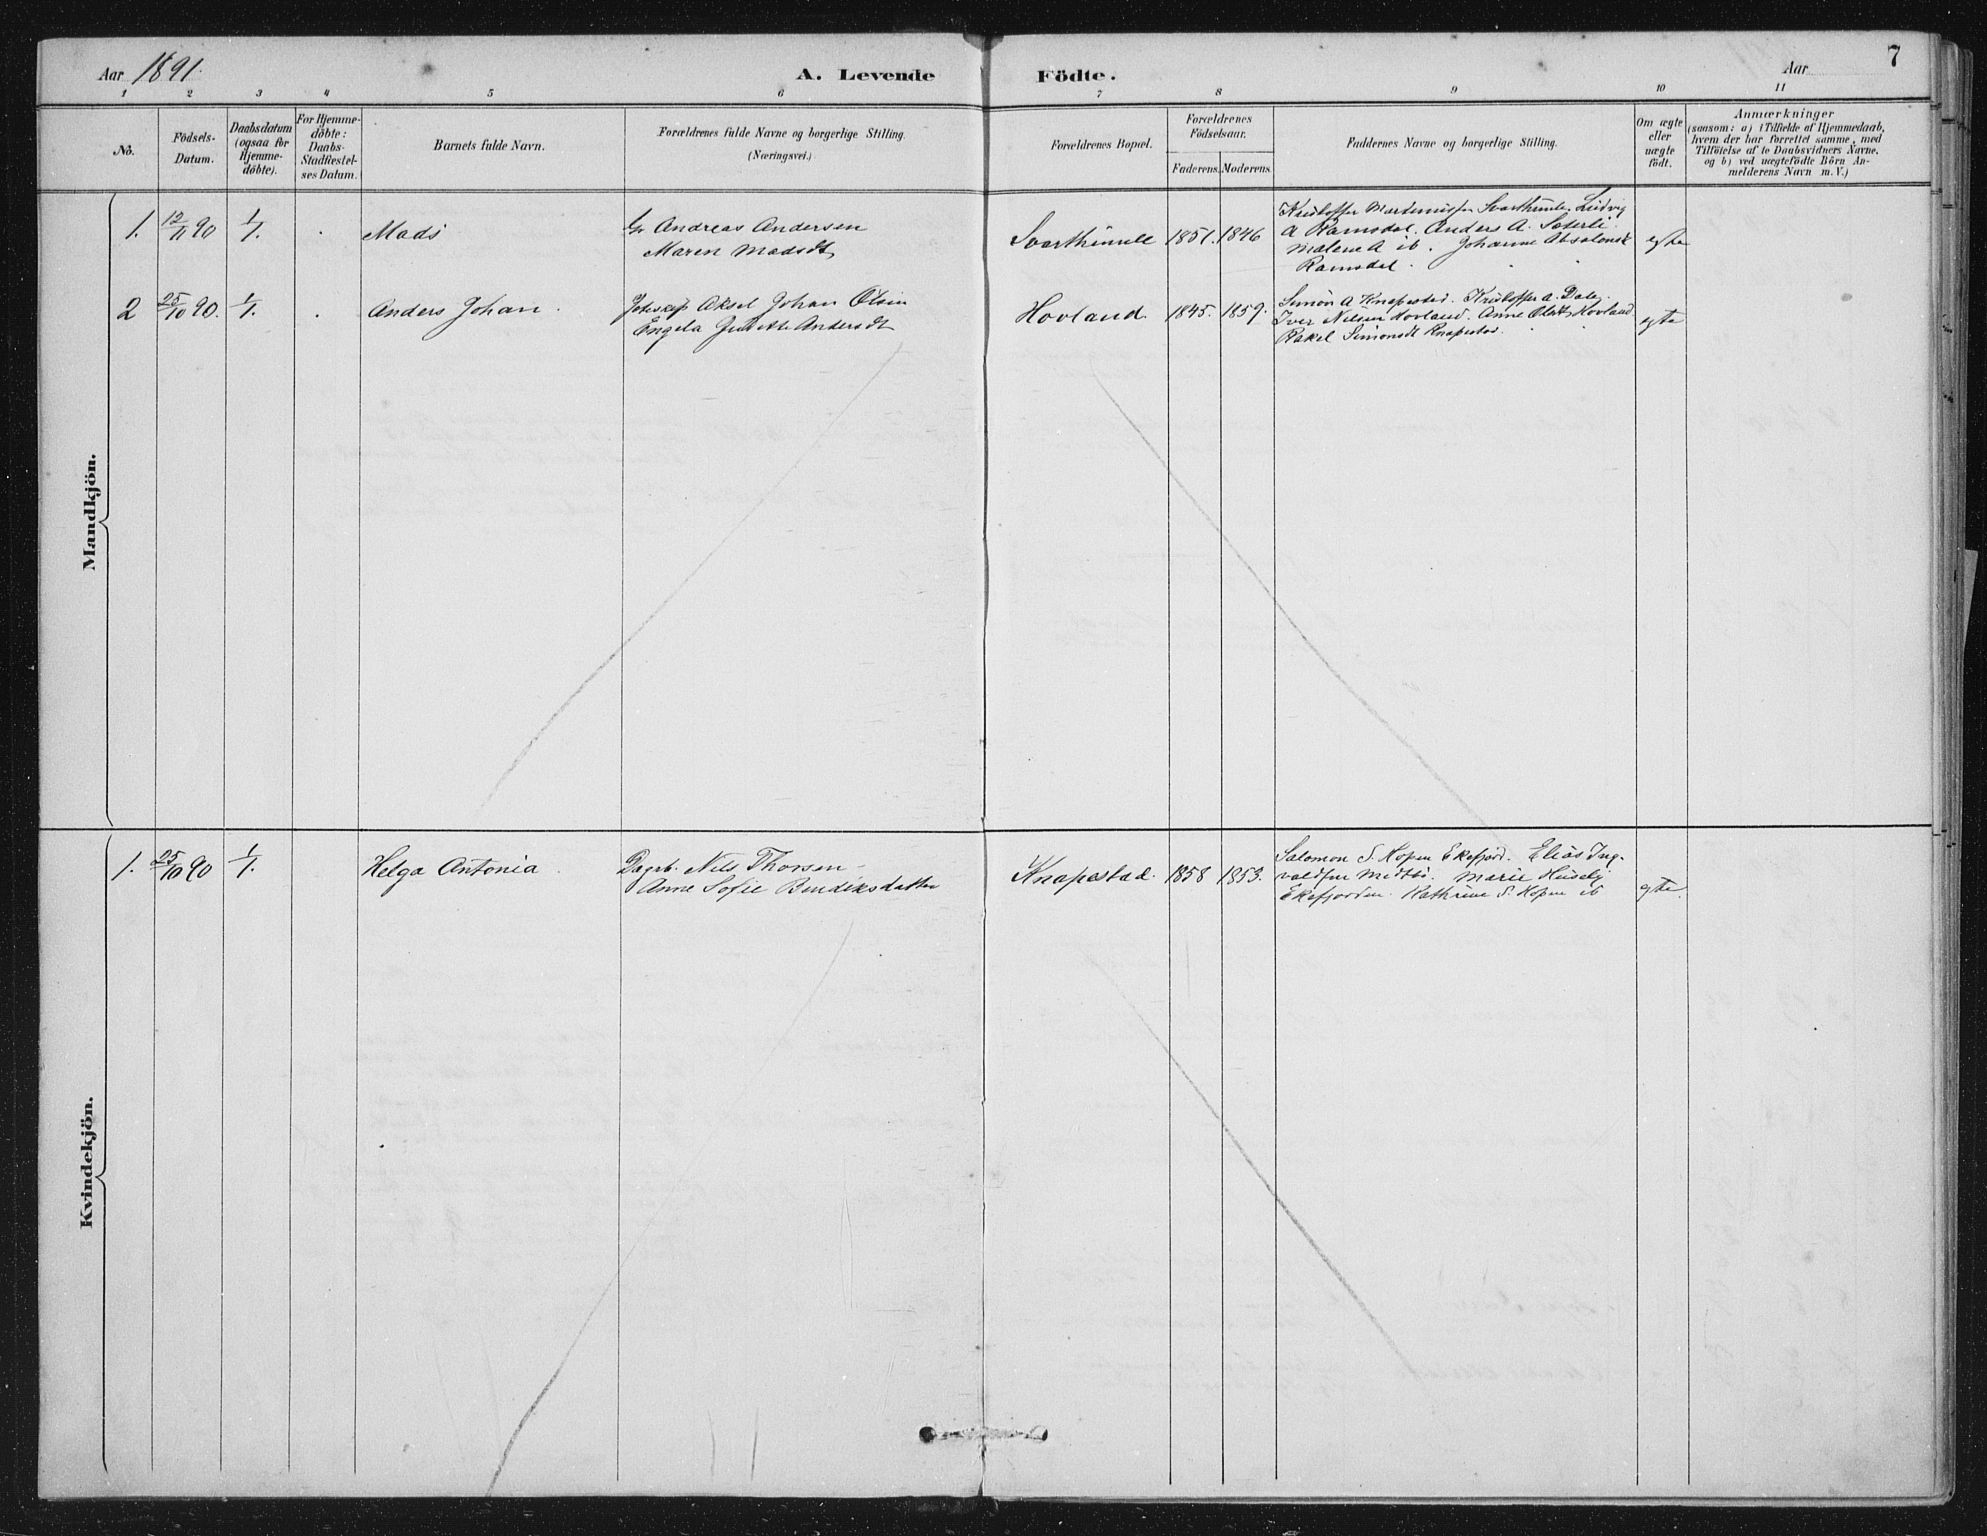 Aar 1891.
A. Levende Födte.
Aar
7
1 2 3 4 5 6 7 8 9 10 11
No.
Födsels-
Datum.
Daabsdatum
(ogsaa for
Hjemme-
döbte).
For Hjemme-
döbte:
Daabs-
Stadfæstel-
ses Datum.
Barnets fulde Navn.
Forældrenes fulde Navne og borgerlige Stilling.
(Næringsvei.)
Forældrenes Bopæl.
Forældrenes
Födselsaar.
Faderens. Moderens.
Faddernes Navne og borgerlige Stilling.
Om ægte
eller
uægte
födt.
Anmærkninger
(saasom: a) i Tilfælde af Hjemmedaab,
hvem der har forrettet samme, med
Tilföielse af to Daabsvidners Navne,
og b) ved uægtefödte Börn An-
melderens Navn m. V.)
Mandkjön.
1. 12/11 90 1/1. Mads
Gr Andreas Andersen
Maren Madsdt
Svarthumle 1851. 1846
Kristoffer Martinussen Svarthumle, Ludvig
A Ramsdal. Anders A. Sæterli
Malene A ib. Johanne Absalonsd
Ramsdal.
egte
2 25/10 90. 1/1. Anders Johan.
Aksel Johan Olsen
Engela Andersdt
Hovland 1845. 1859.
Simon A Knapestad. Kristoffer A. Dale.
Iver Nilsen Hovland. Anne Olsdt Hovland
Rakel Simonsdt Knapestad.
egte
Kvindekjön.
1. 25/10 90 1/1. Helga Antonia
Dagarb. Nils Thorsen
Anne Sofie Bendiksdatter
Knapestad. 1858 1853.
Salomon S. Hopen Ekefjord. Elias Ing-
valdsen Medbö. Marie Huseby
Ekefjorden. Kathrine S. Hopen ib
egte.